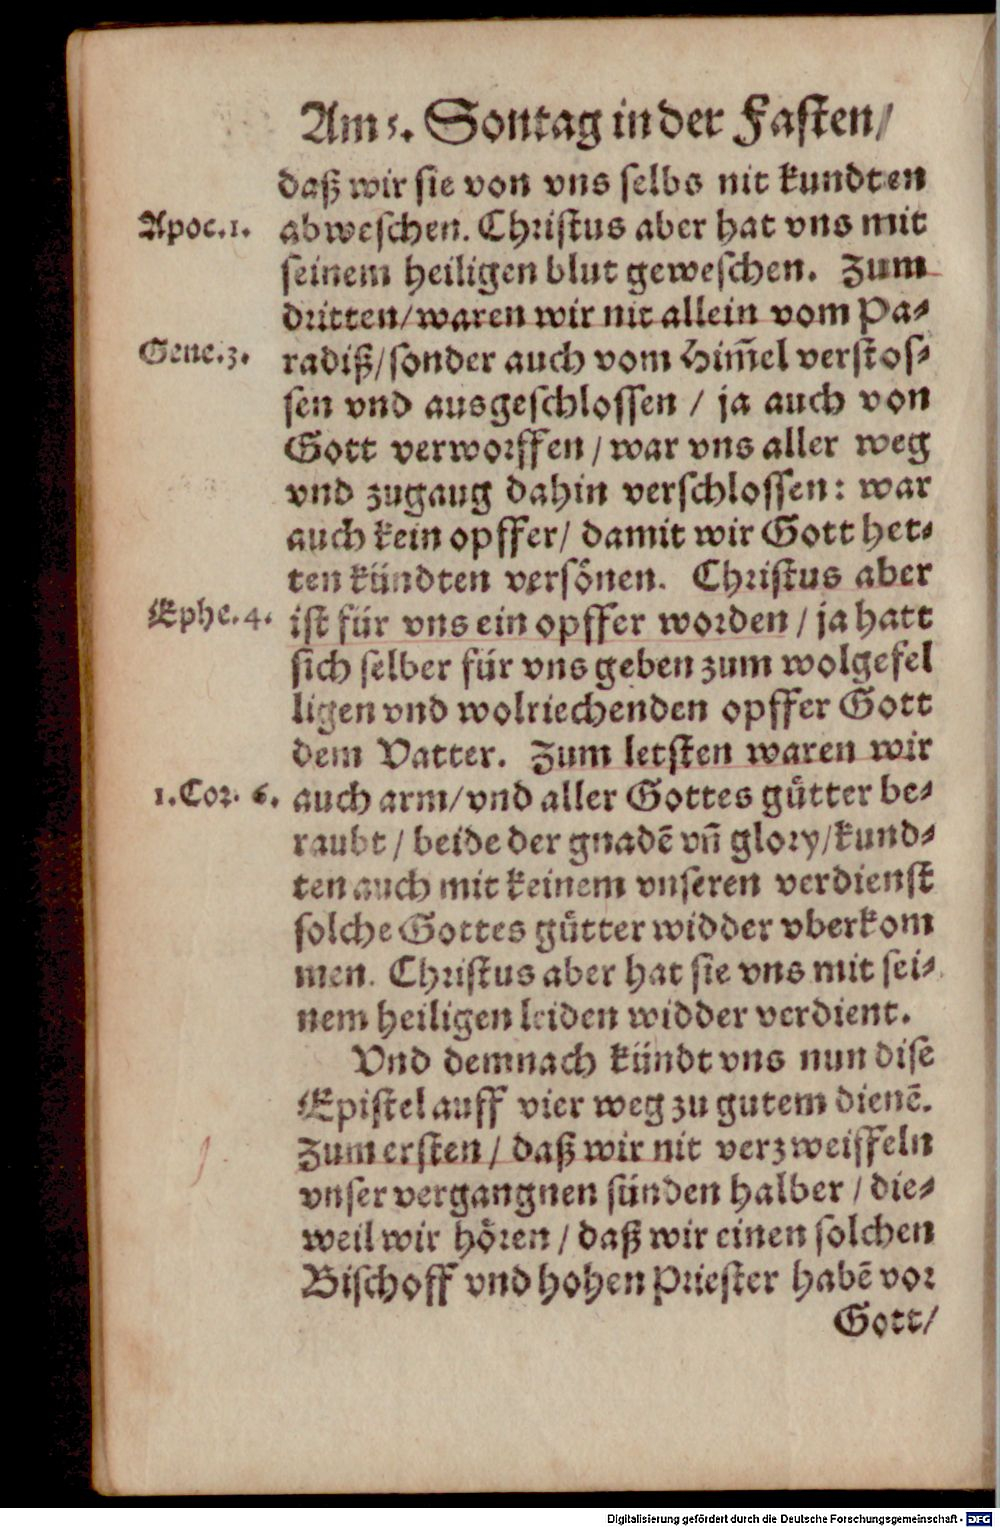 Am 5. Sontag in der Fasten/
daß wir sie von vns selbs nit kundten
Apoc.1. abweschen. Christus aber hat vns mit
seinem heiligen blut geweschen. Zum
dritten/waren wir nit allein vom Pa⸗
Gene.3. radiß/sonder auch vom Him̃el verstos⸗
sen vnd ausgeschlossen / ja auch von
Gott verworffen / war vns aller weg
vnd zugaug dahin verschlossen: war
auch kein opffer/ damit wir Gott het⸗
ten kündten versönen. Christus aber
Ephe.4. ist für vns ein opffer worden / ja hatt
sich selber für vns geben zum wolgefel
ligen vnd wolriechenden opffer Gott
dem Vatter. Zum letsten waren wir
1.Cor. 6. auch arm/vnd aller Gottes guͤtter be⸗
raubt / beide der gnadẽ vñ glory/kund⸗
ten auch mit keinem vnseren verdienst
solche Gottes guͤtter widder vberkom
men. Christus aber hat sie vns mit sei⸗
nem heiligen leiden widder verdient.
Vnd demnach kündt vns nun dise
Epistel auff vier weg zu gutem dienẽ.
Zum ersten / daß wir nit verzweiffeln
vnser vergangnen sünden halber / die⸗
weil wir hoͤren / daß wir einen solchen
Bischoff vnd hohen Priester habẽ vor
Gott/
Digitalisierung gefördert durch die Deutsche Forschungsgemeinschaft - DFG